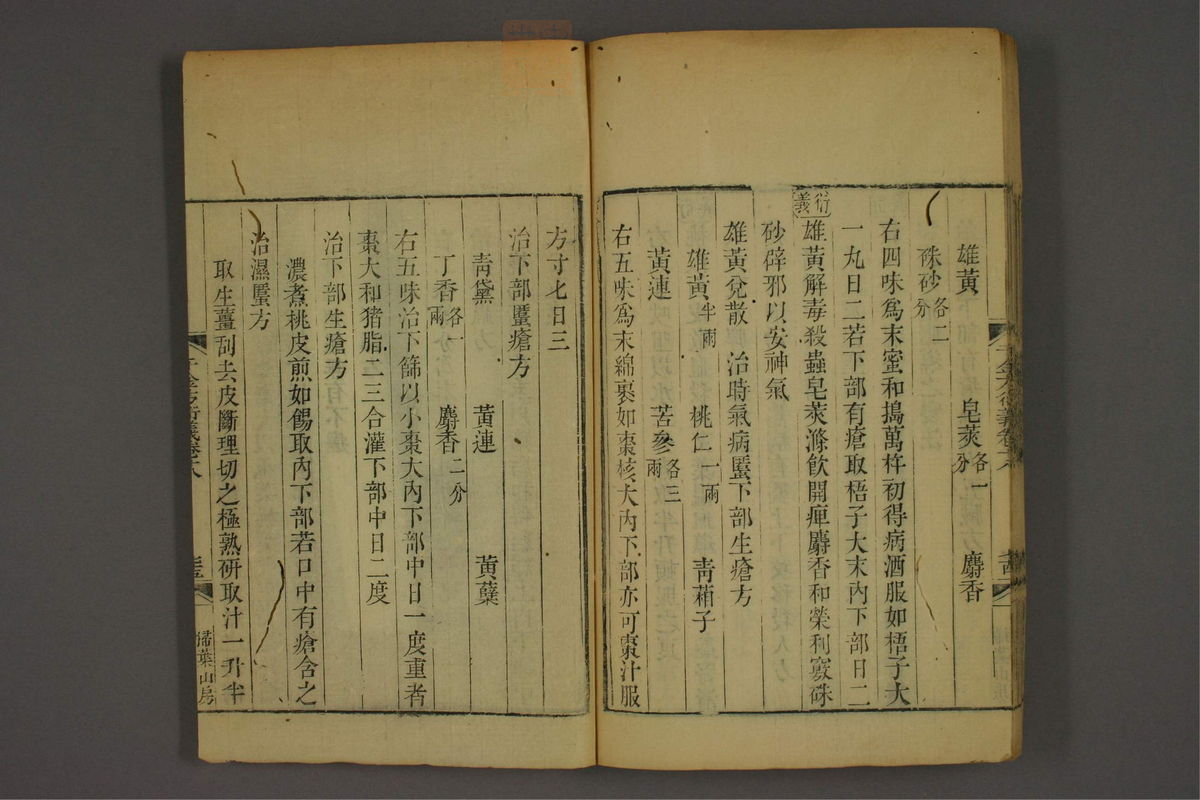 千金方衍義卷十八 十四
雄黃 皂莢各一分 麝香
硃砂各二分
右四味爲末蜜和搗萬杵初得病酒服如梧子大
一丸日二若下部有瘡取梧子大末內下部日二
衍義 雄黃解毒殺蟲皂莢滌飲開痺麝香和榮利竅硃
砂辟邪以安神氣
雄黃兌散 治時氣病䘌下部生瘡方
雄黃半兩 桃仁一兩 青葙子
黃連 苦參各三兩
右五味爲末綿裹如棗核大內下部亦可棗汁服
方寸匕日三
治下部䘌瘡方
青黛 黃連 黃蘗
丁香各一兩 麝香二分
右五味治下篩以小棗大內下部中日一度重者
棗大和猪脂二三合灌下部中日二度
治下部生瘡方
濃煮桃皮煎如餳取內下部若口中有瘡含之
治濕䘌方
取生薑刮去皮斷理切之極熟研取汁一升半
千金方衍義卷十八 十五 掃葉山房